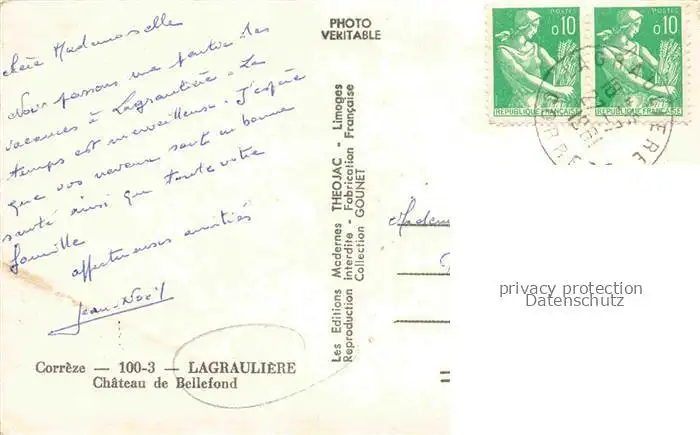 Chère Mademoiselle
Nous passons une partie des
vacances à Lagraulière. Le
temps est merveilleux. J'espère
que vos neveux sont en bonne
santé ainsi que toute votre
famille
affectueuses amitiés
Jean-Noël
Corrèze — 100-3 — LAGRAULIÈRE
Château de Bellefond
PHOTO
VERITABLE
Les Editions Modernes THEOJAC - Limoges
Reproduction interdite - Fabrication Française
Collection GOUNET
POSTES
0,10
REPUBLIQUE FRANÇAISE
POSTES
0,10
REPUBLIQUE FRANÇAISE
1961
privacy protection
Datenschutz